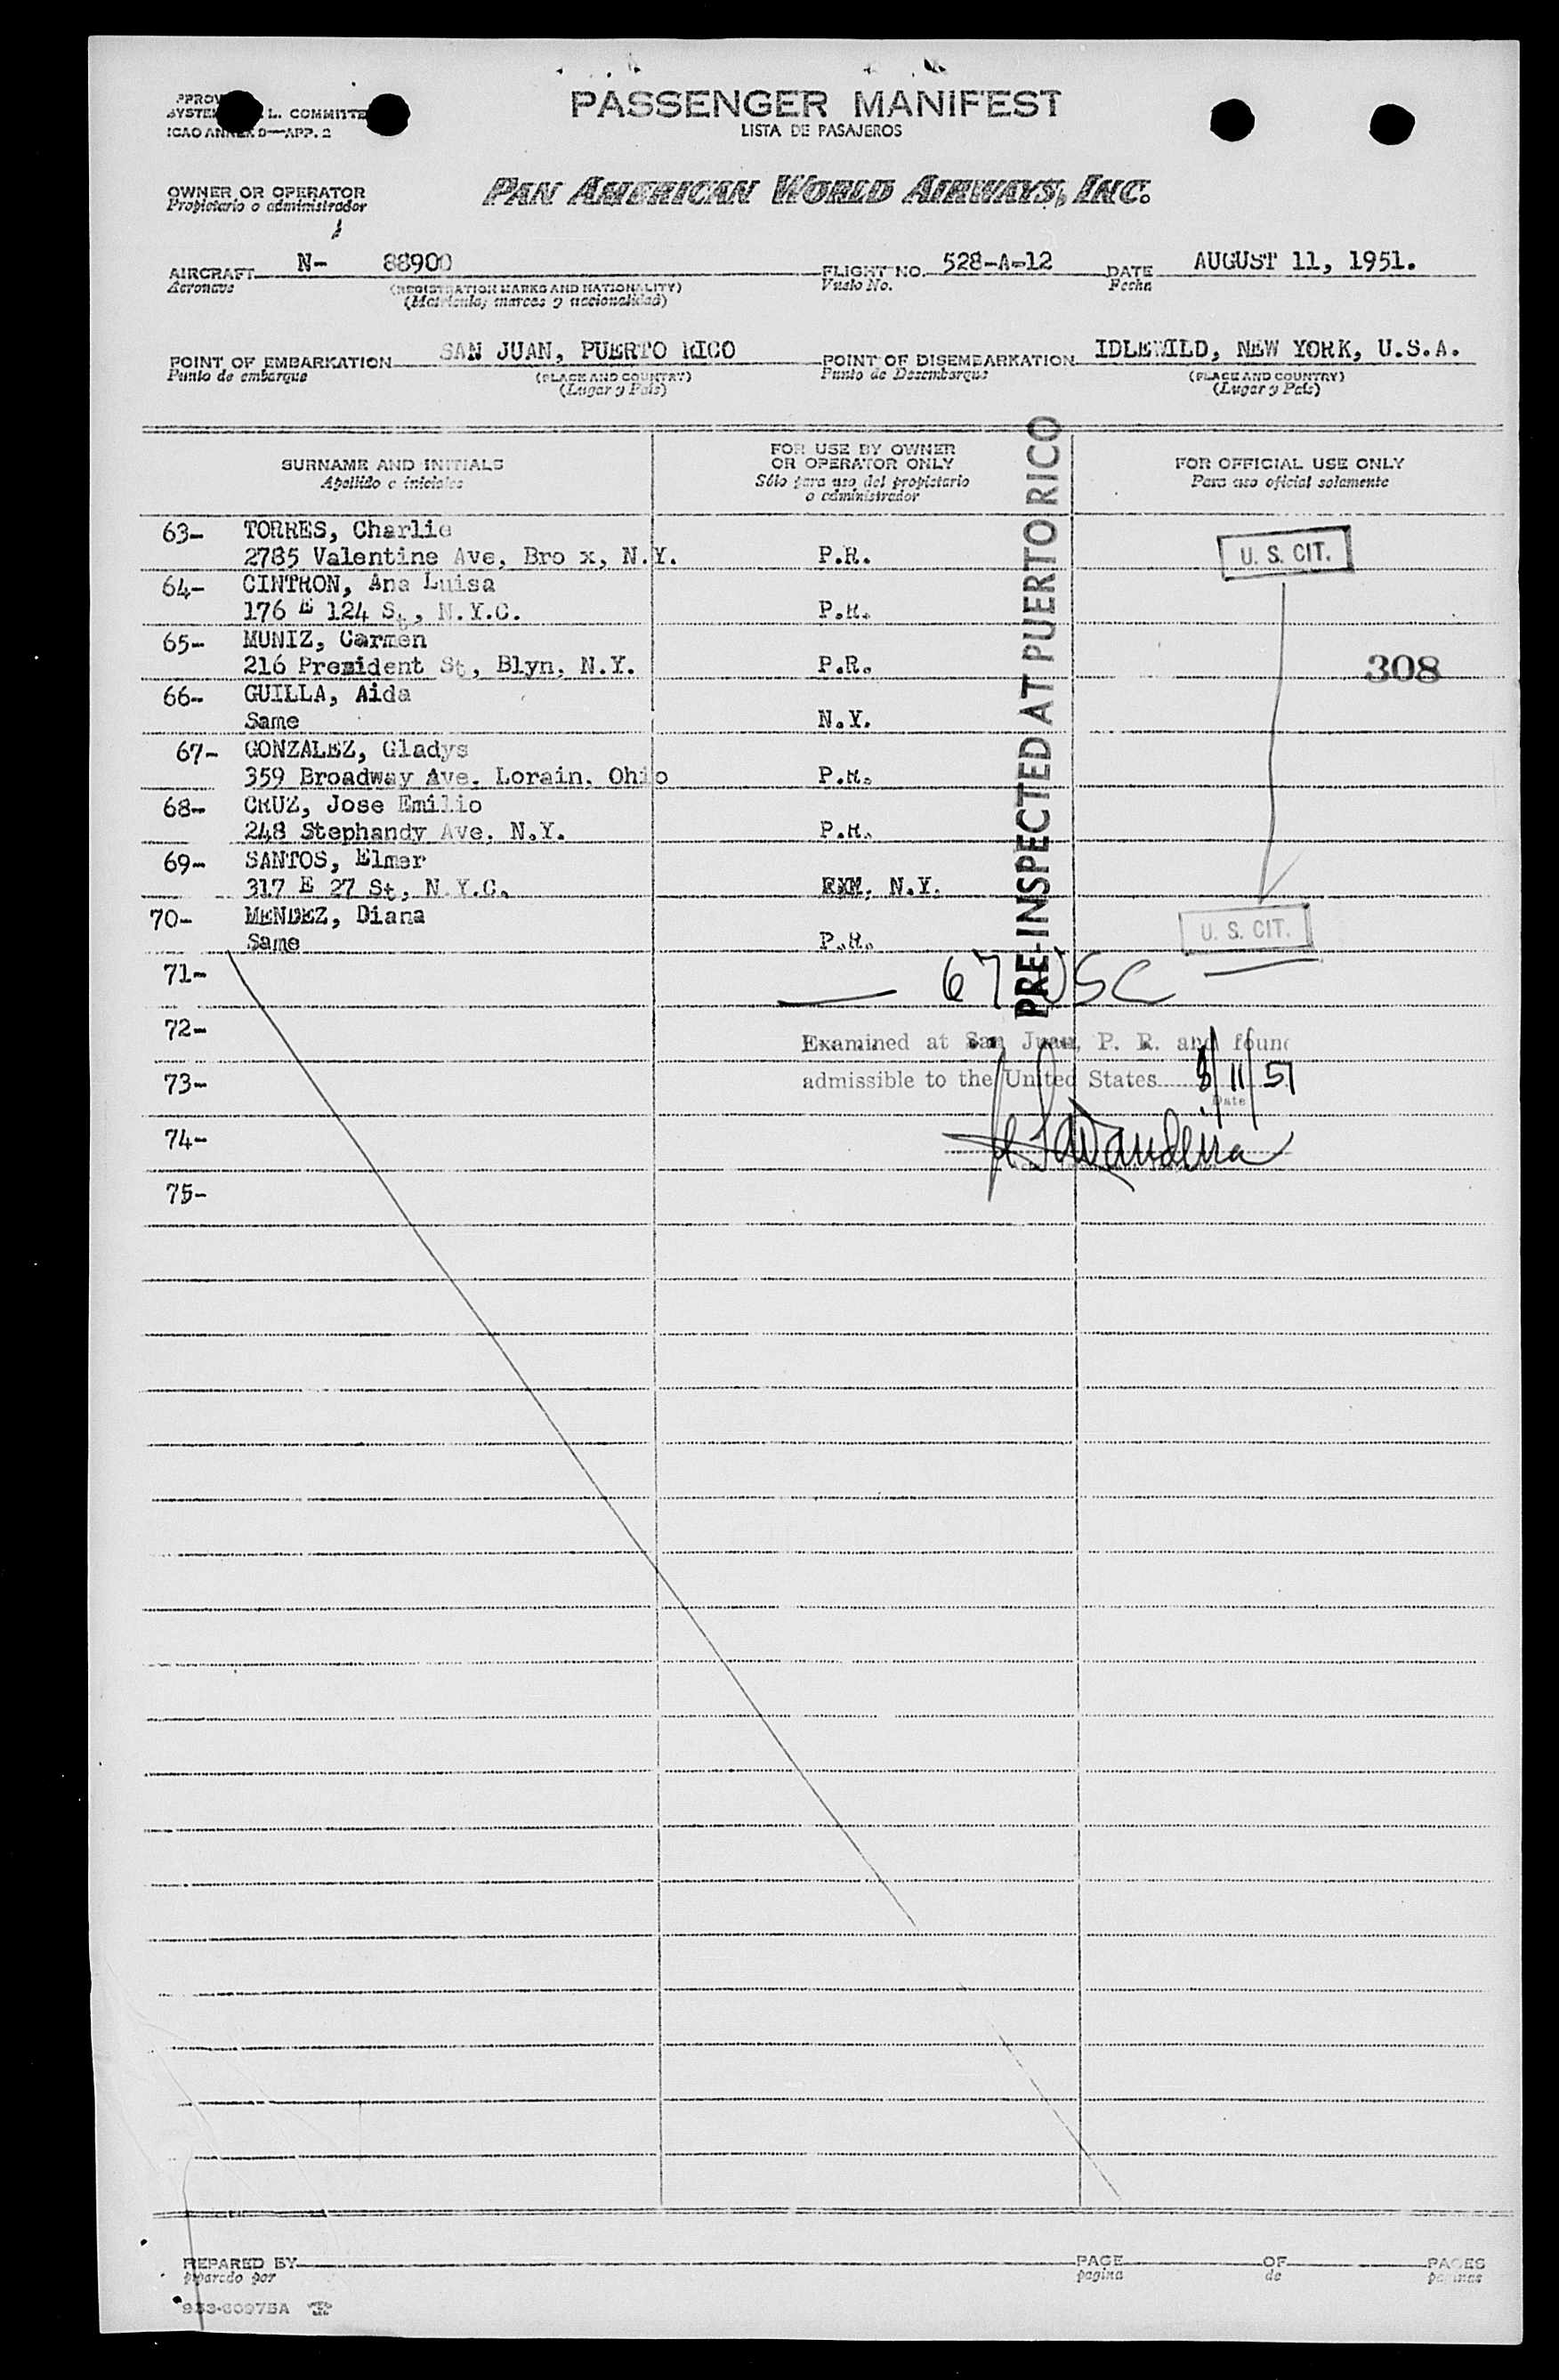 PASSENGER MANIFEST
LISTA DE PASAJEROS
L. COMMITTE
ICAO ANNEX 9—APP. 2
OWNER OR OPERATOR
Propietario o administrador
PAN AMERICAN WORLD AIRWAYS, INC.
AIRCRAFT N- 88900 FLIGHT NO. 528-A-12 DATE AUGUST 11, 1951.
Aeronave (REGISTRATION MARKS AND NATIONALITY) Vuelo No. Fecha
(Matricula, marcas y nacionalidad)
POINT OF EMBARKATION SAN JUAN, PUERTO RICO POINT OF DISEMBARKATION IDLEWILD, NEW YORK, U.S.A.
Punto de embarque (PLACE AND COUNTRY) Punto de Desembarque (PLACE AND COUNTRY)
(Lugar y País) (Lugar y País)
SURNAME AND INITIALS FOR USE BY OWNER OR OPERATOR ONLY FOR OFFICIAL USE ONLY
Apellido e iniciales Sólo para uso del propietario o administrador Para uso oficial solamente
PRE-INSPECTED AT PUERTO RICO
63- TORRES, Charlie
2785 Valentine Ave, Bro x, N.Y. P.R. U. S. CIT.
64- CINTRON, Ana Luisa
176 E 124 St, N.Y.C. P.R.
65- MUNIZ, Carmen
216 President St, Blyn, N.Y. P.R. 308
66- GUILLA, Aida
Same N.Y.
67- GONZALEZ, Gladys
359 Broadway Ave. Lorain, Ohio P.R.
68- CRUZ, Jose Emilio
248 Stephandy Ave. N.Y. P.R.
69- SANTOS, Elmer
317 E 27 St, N.Y.C. N.Y.
70- MENDEZ, Diana
Same P.R. U. S. CIT.
71- 67 USC
72- Examined at San Juan, P. R. and found
73- admissible to the United States 8/11/51
Date
74-
75-
PREPARED BY PAGE OF PAGES
preparado por pagina de paginas